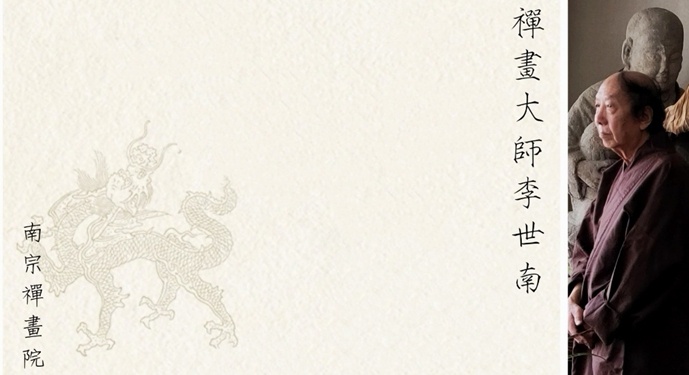 禪畫大師李世南
南宗禪畫院